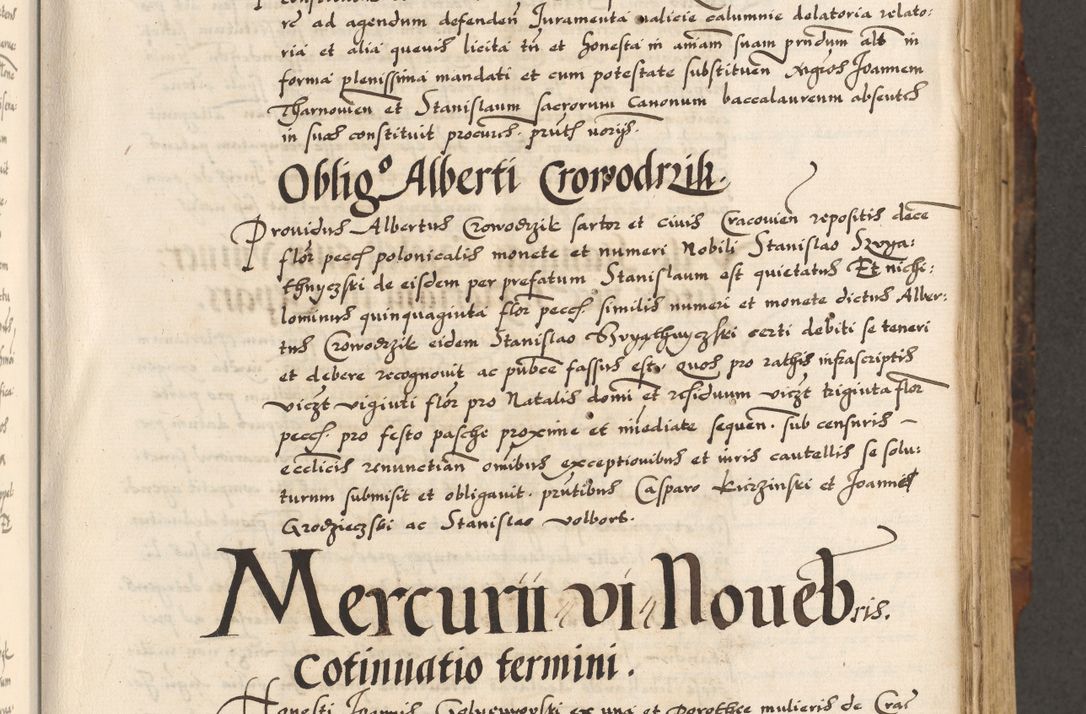 re ad agendum defenden Juramenta calicie calumnie delatoria relato:
ria et alia quevis licita tn et honesta in aniam suam prndum alt in
forma plenissima mandati et cum potestate substituen Mgros Joannem
Tharnovien et Stanislaum sacrorum Canonum baccalaureum absentes
in suos constituit procures. pntt
Obligo Alberti Crowodrzik.
Providus Albertus Crowodrzik sartor et civis Cracovien repositis dece
flor pecc polonicalis monete et numeri Nobili Stanislao
de eisdem per prefatum Stanislaum est quietatus Et nichi:
lominus quinquaginta flor pecc similis numeri et monete dictus Alber:
tus Crowodrzik eidem Stanislao certi debiti se teneri
et debere recognovit ac pubce fassus est. quos pro rathis infrascriptis
viczt viginti flor pro Natalis domi et residuum viczt trigiuta flor
pecc. pro festo pasche proxime et imediate sequen. sub censuris –
ecclicis renunctian omibus exceptionibus et iuris cautellis se solu:
turum submisit et obligavit. pntibus Casparo Kurzinski et Joannes
Grodzieczski ac Stanislao Volbors.
Mercurii vi Novebris.
Cotinuatio termini.
Honesti Joannis ex una et Dorothee mulieris de Crac